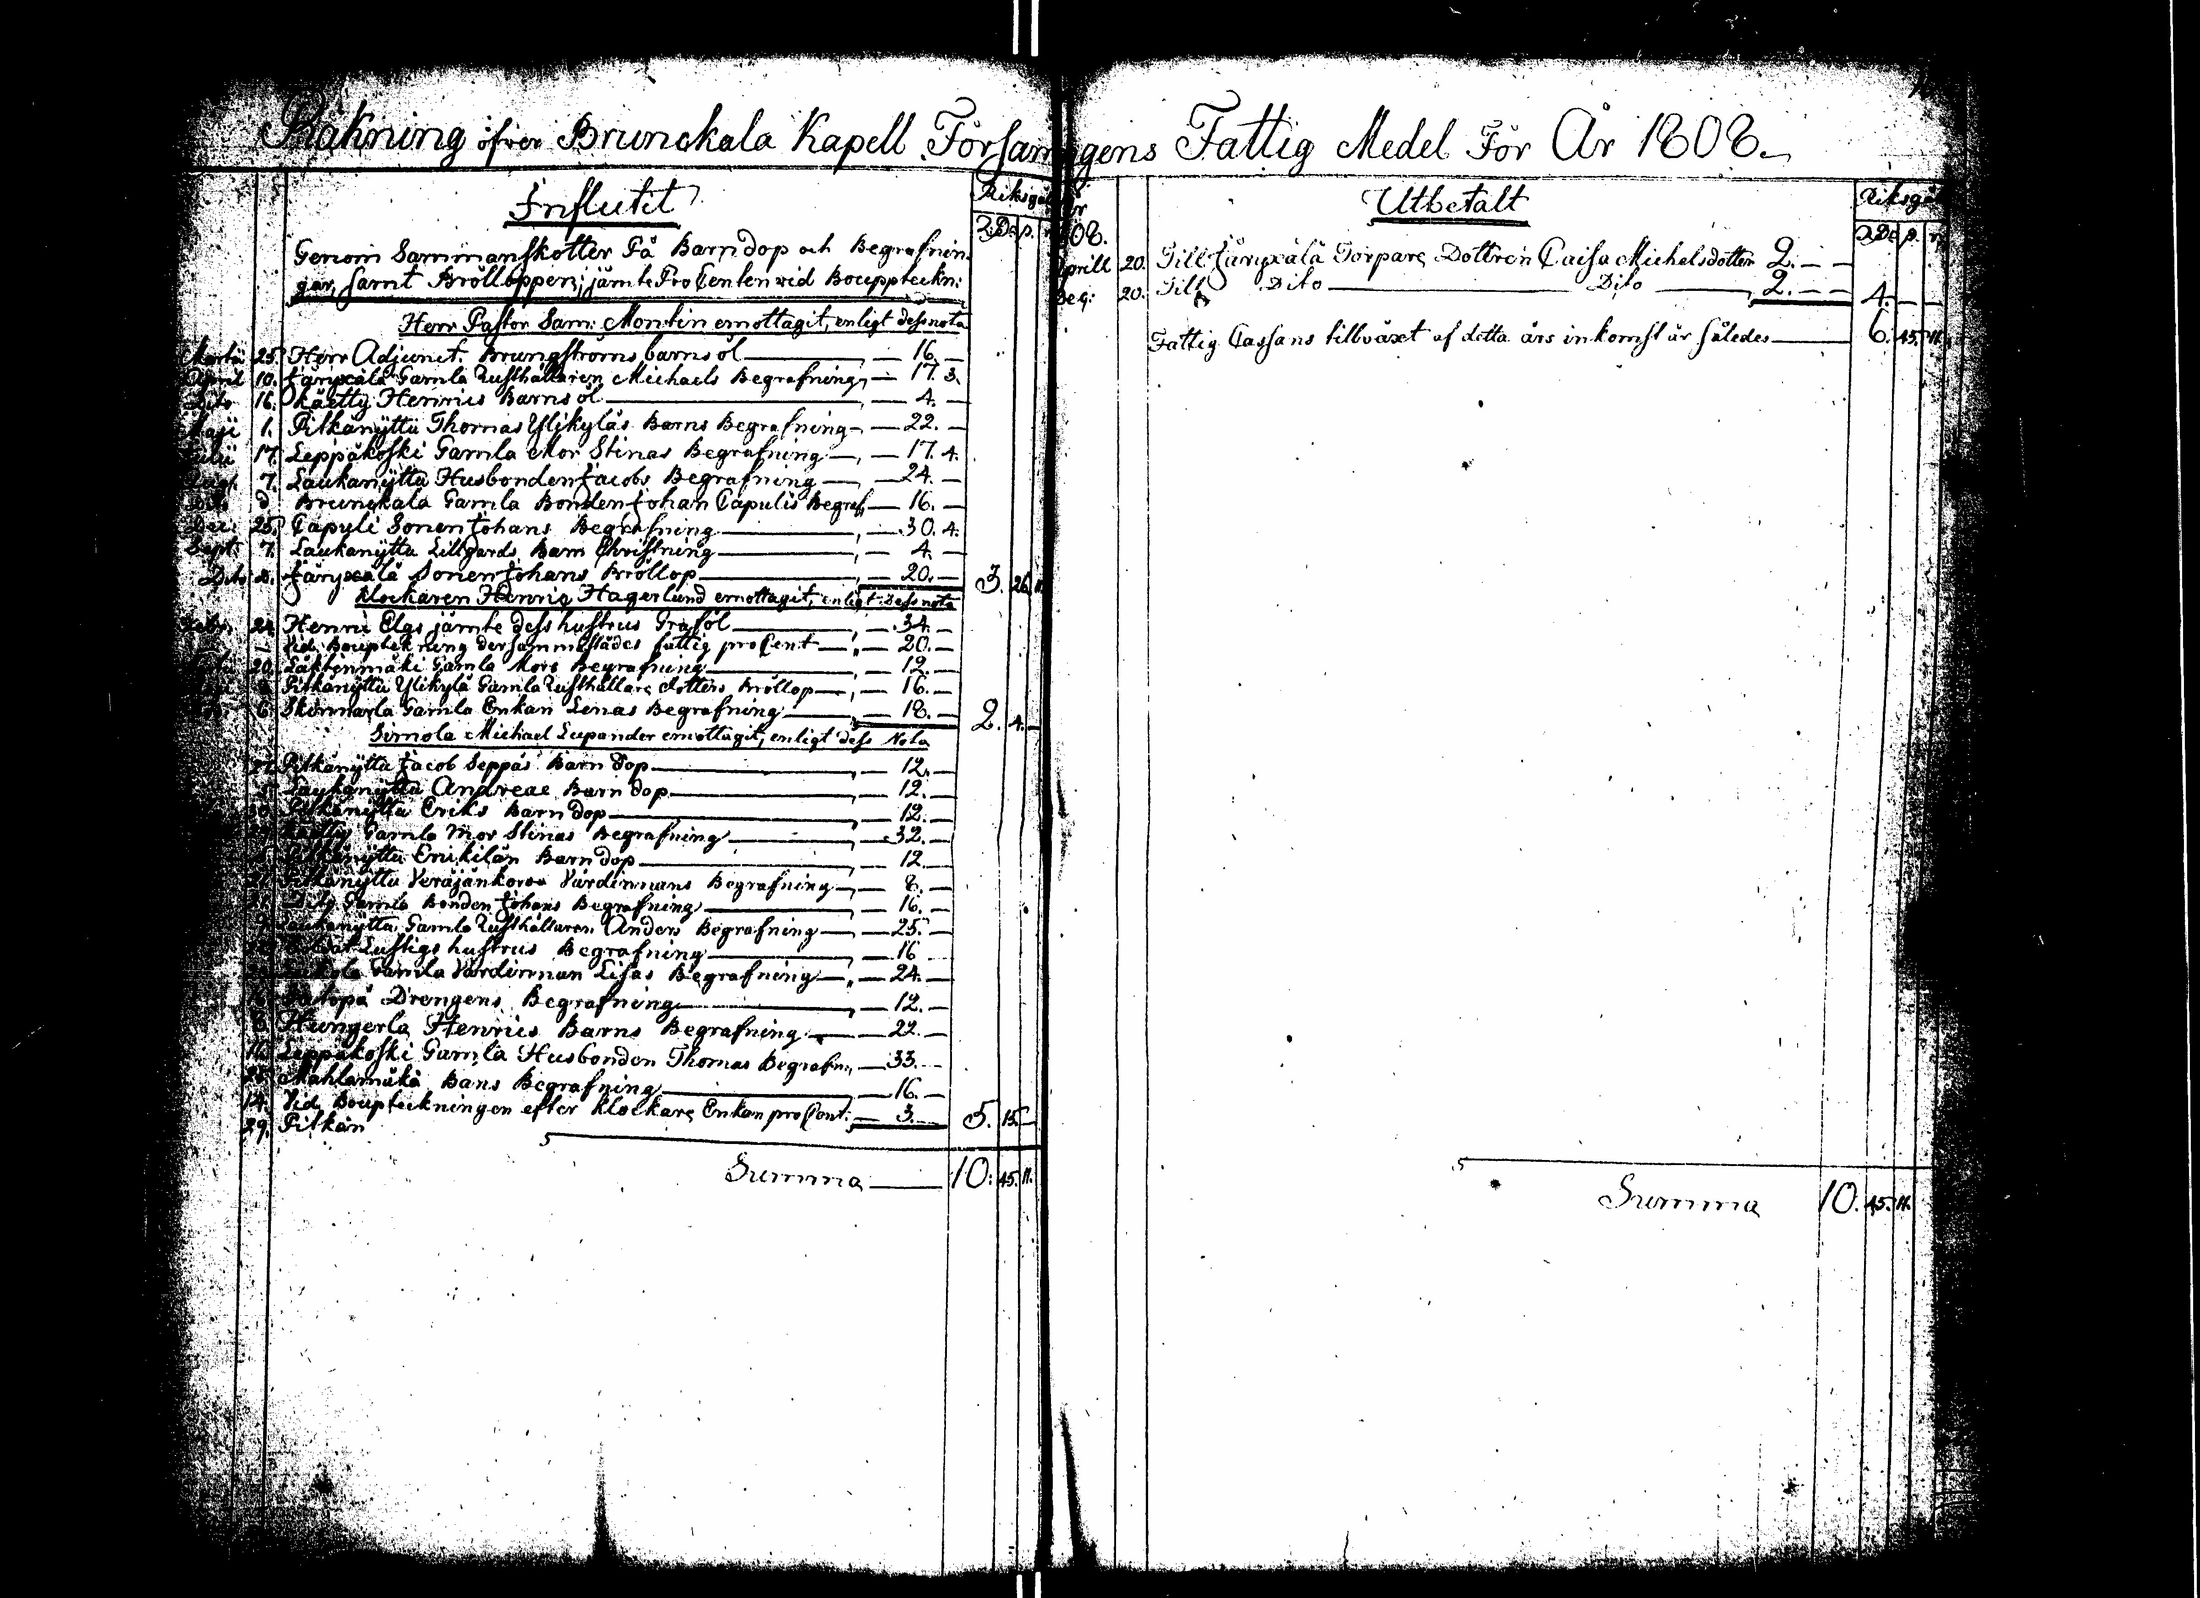 Räkning öfver Brunckala Kapell Församgens Fattig Medel För År 1808.
Influtit
Riksgäl
Genom Sammanskotter På Barndop och Begrafnin
gar, samt Bröllopper, jämte Pro Centen wid Boeuppteckn:
Herr Pastor Sam: Montin emottagit, enligt dess nota
25. Herr Adjunct. Brungströms barnsöl — 16. —
April 10. Järyxälä Gamla Rusthållaren Michaels Begrafning, — 17. 3.
Dito 16. Käetty Henrics Barnsöl — 4. —
Maji 1. Pitkänyttu Thomas Ylikyläs Barns Begrafning — 22. —
17. Leppäkoski Gamla Mor Stinas Begrafning — 17. 4.
7. Laukanyttu Husbonden Jacobs Begrafning — 24. —
d Brunckala Gamla Bonden Johan Capulis Begraf — 16. —
25. Capyli Sonen Johans Begrafning — 30. 4.
Sept: 7. Laukanyttu Lillgards Barn Christning — 4. —
Dito Järyxälä Sonen Johans Bröllop — 20. — 3. 26. 11
Klockaren Henric Hagerlund emottagit, enligt Dess nota
Henric Elgs jämte dess hustrus Graföl — 34. —
1. Vid Bouptekning dersammastädes fattig pro Cent — 20. —
20. Gamla Mors Begrafning — 12. —
Pitkänyttu Ylikylä Gamla Rusthållare dotters Bröllop — 16. —
6. Gamla Enkan Lenas Begrafning — 18. — 2. 4. —
Simola Michael Lupander emottagit, enligt dess Nota
Pitkänyttu Jacob Seppäs Barn dop — 12. —
Andreae Barn dop — 12. —
Pitkänyttu Eriks Barn dop — 12. —
Gamla Mor Stinas Begrafning — 32. —
Pitkänyttu Barn dop — 12
Pitkänyttu Veräjänkorva Värdinnans Begrafning — 8. —
Dito Gamla Bonden Johans Begrafning — 16. —
Laukanyttu Gamla Rusthållaren Anders Begrafning — 25. —
Lustigs hustrus Begrafning — 16
Gamla Värdinnan Lisas Begrafning — 24. —
Drengens Begrafning — 12. —
8. Hungerla Henrics Barns Begrafning — 22. —
Leppäkoski Gamla Husbonden Thomas Begrafn, — 33. —
Mahlamäki Bans Begrafning — 16. —
14. Vid Boupteckningen efter Klockare Enkan pro Cent: — 3. — 5. 15. —
29. Pitkän
Summa — 10. 45. 11.
808.
Utbetalt
Riksgäl
Aprill 20. Till Järyxälä Torpare Dottren Caisa Michelsdotter 2. — —
20. Till Dito — Dito — 2. — — 4. — —
Fattig Cassans tillväxt af detta års inkomst är således — 6. 45. 11.
Summa 10. 45. 11.